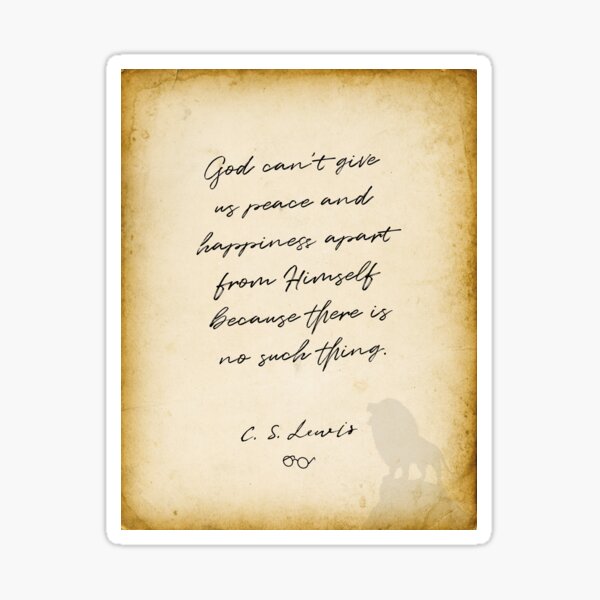 God can't give
us peace and
happiness apart
from Himself
because there is
no such thing.
C. S. Lewis